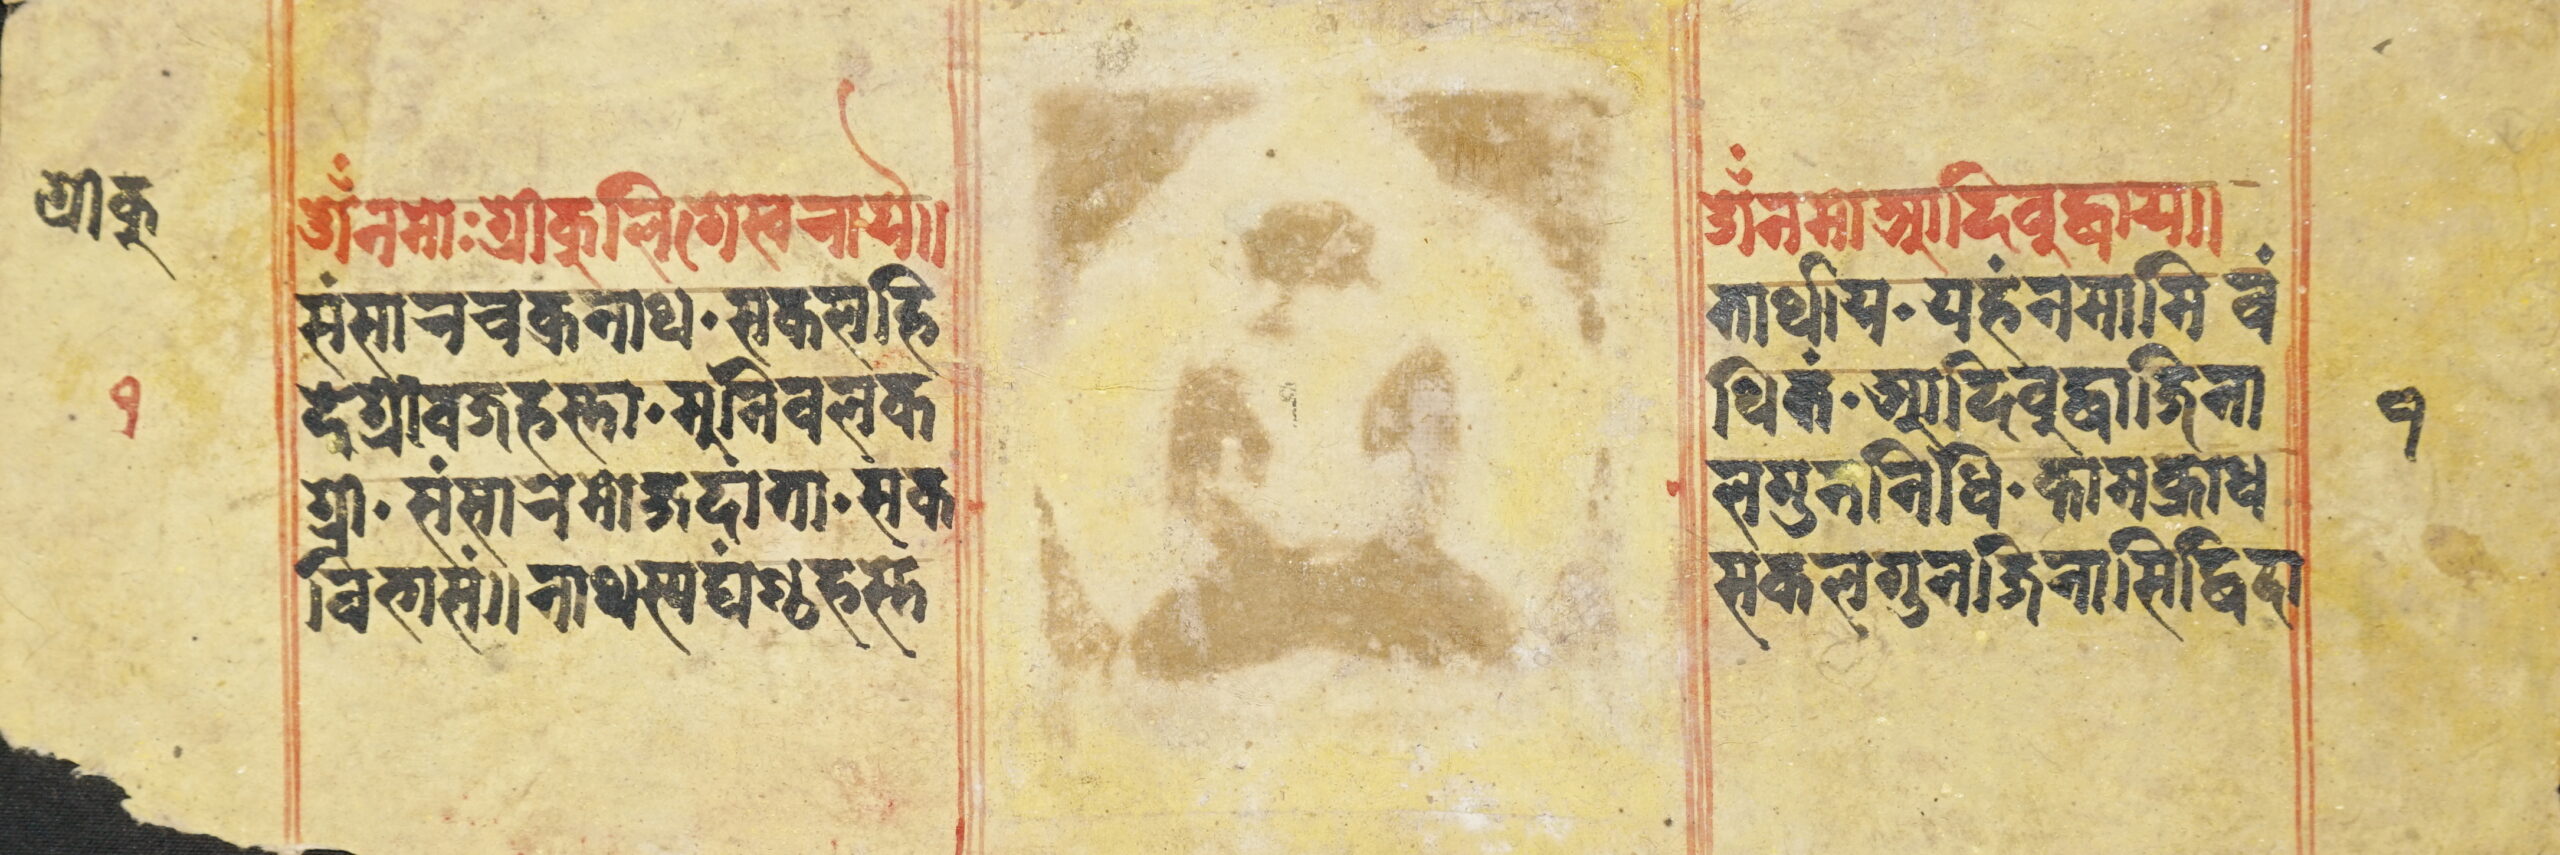 श्रीकु
१
ॐ नमोः श्रीकुलिशेस्वनाये॥
संसानचक्रनाथ · सकलहि
दुश्रीवजहस्ता · मुनिवलक
श्री · संसानमोङ्गदांता · सक
वितासं॥ नाथस्य
ॐ नमो आदिबुद्धाय॥
नार्थाय · यहंनमामि वं
थितं · आदिबुद्धाजिना
लगुननिधि · कामक्राध
सकलगुनजिनासिद्धिदा
१